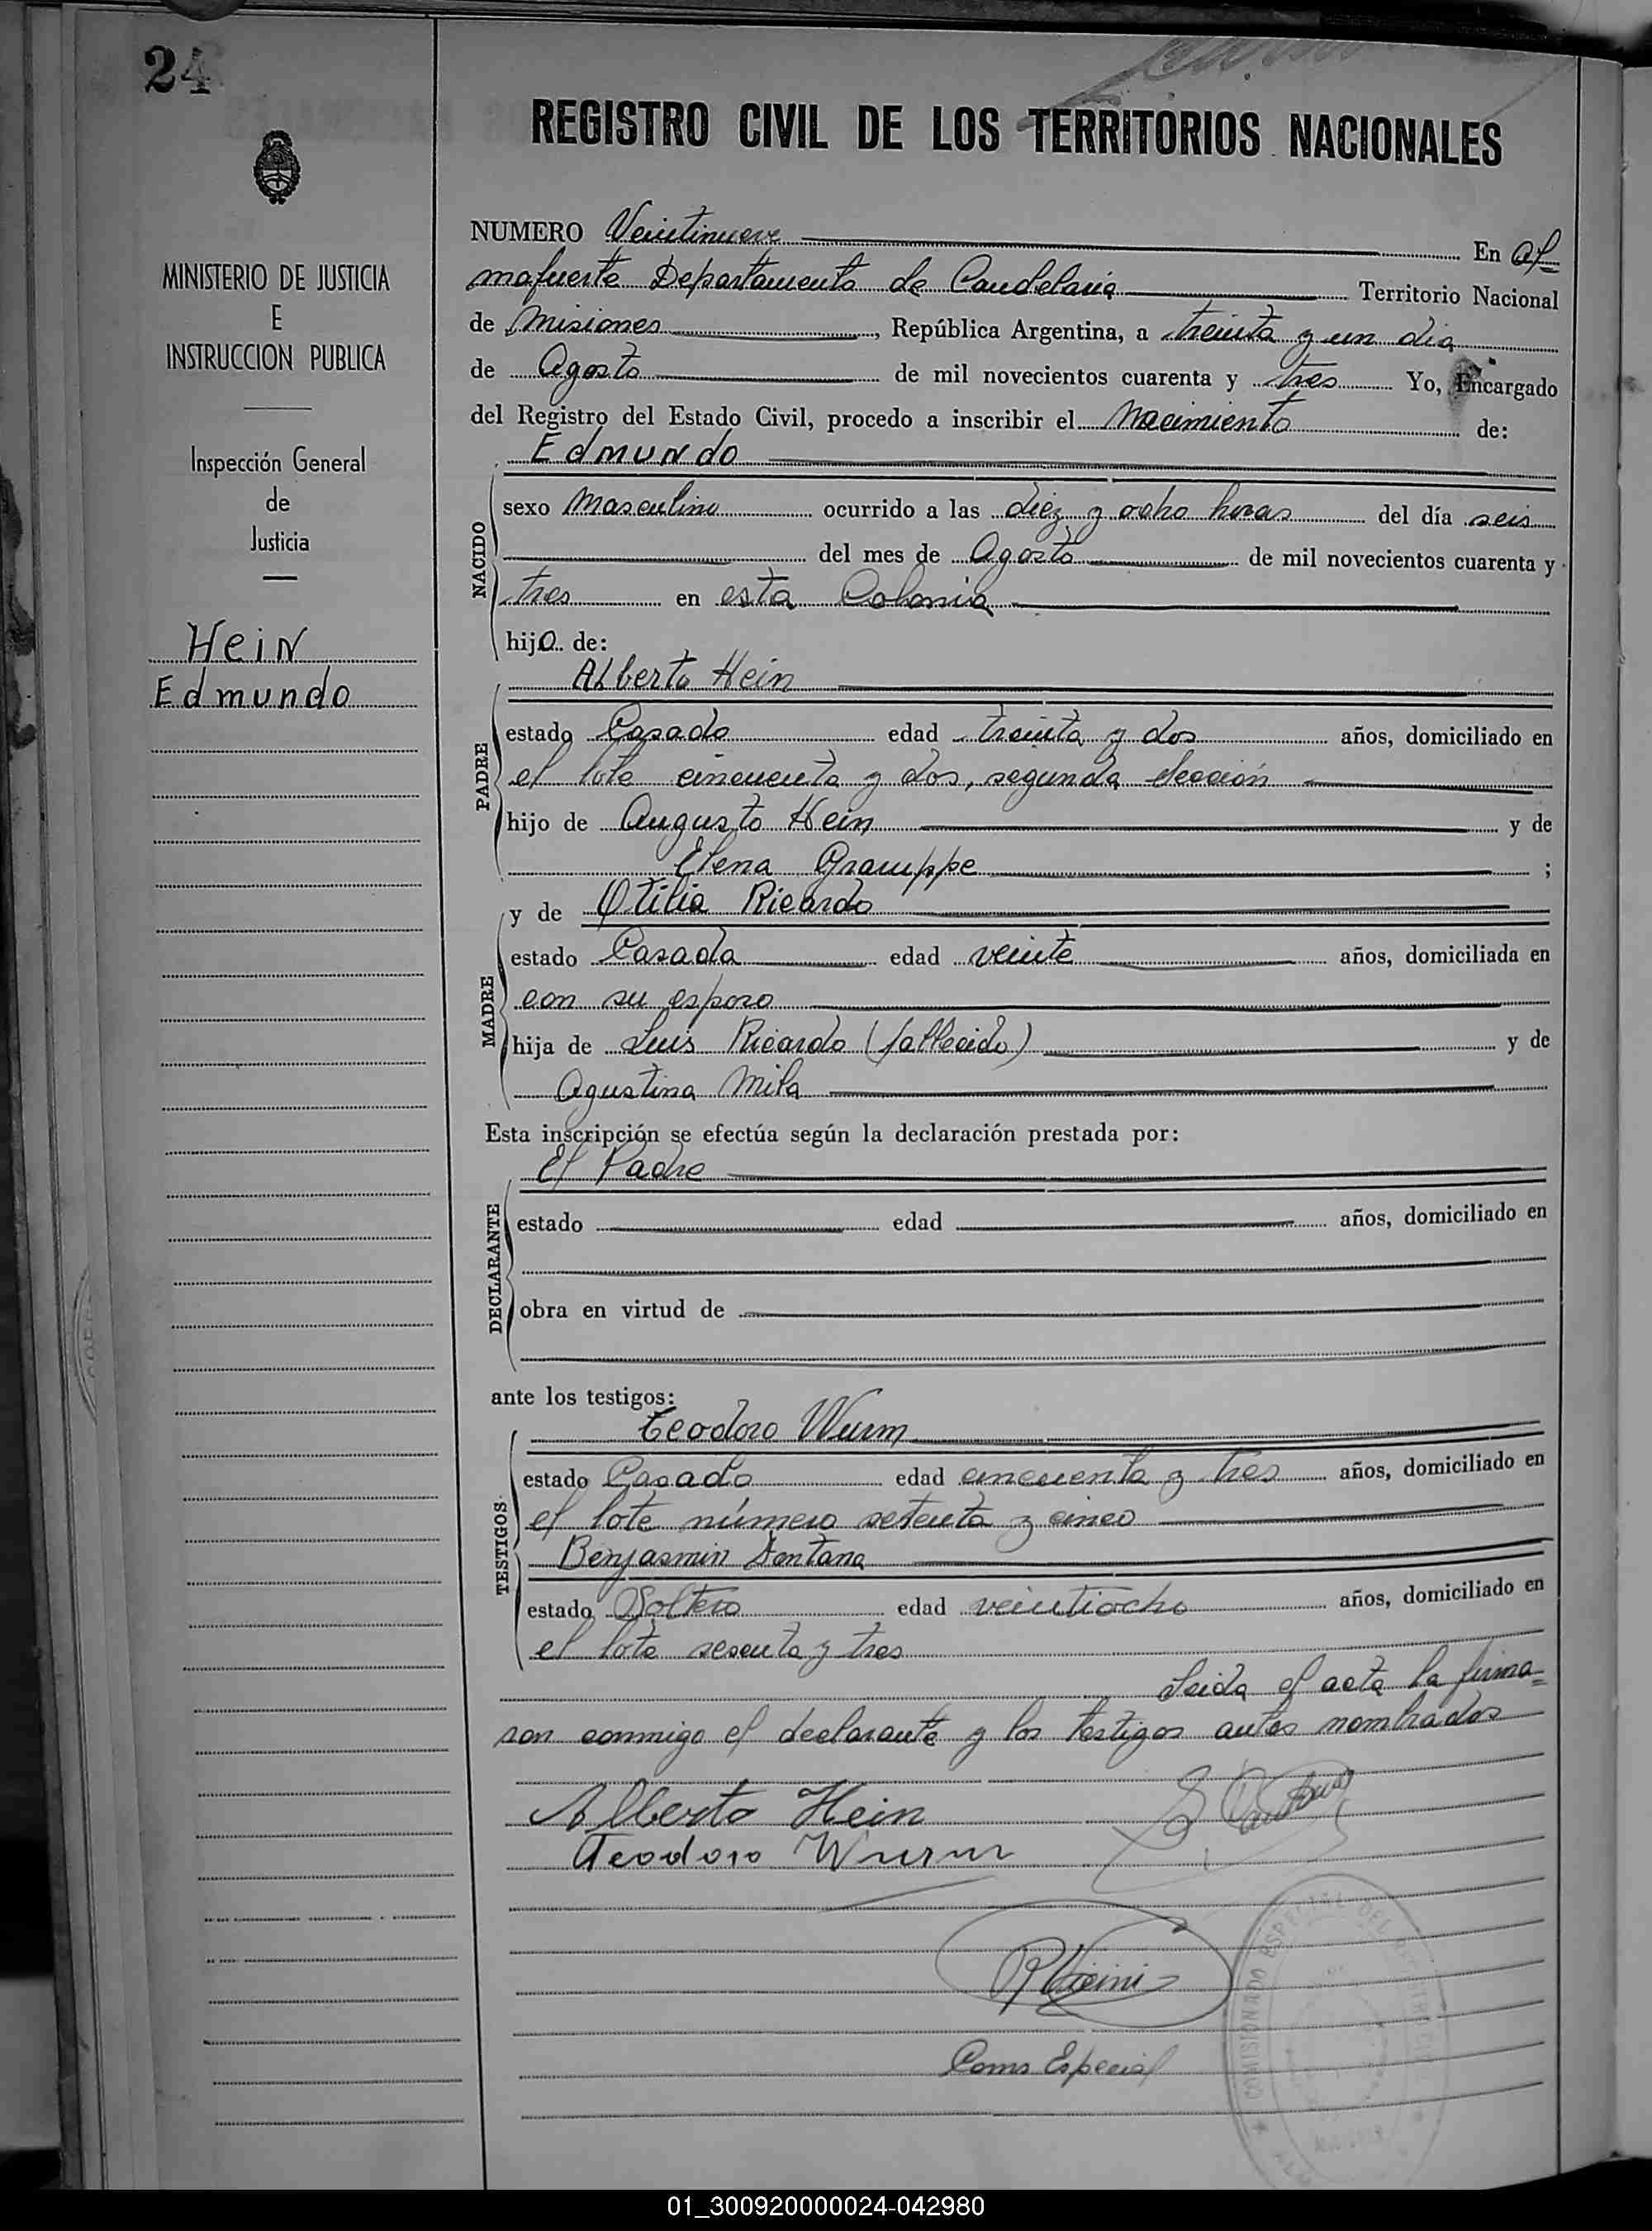 24
REGISTRO CIVIL DE LOS TERRITORIOS NACIONALES
MINISTERIO DE JUSTICIA
E
INSTRUCCION PUBLICA
Inspección General
de
Justicia
Hein
Edmundo
NUMERO Veintinueve En Al=
mafuerte Departamento de Candelaria Territorio Nacional
de Misiones, República Argentina, a treinta y un dia
de Agosto de mil novecientos cuarenta y tres Yo, Encargado
del Registro del Estado Civil, procedo a inscribir el Nacimiento de:
Edmundo
NACIDO
sexo Masculino ocurrido a las diez y ocho horas del día seis
del mes de Agosto de mil novecientos cuarenta y
tres en esta Colonia
hijo de:
PADRE
Alberto Hein
estado Casado edad treinta y dos años, domiciliado en
el lote cincuenta y dos, segunda Sección
hijo de Augusto Hein y de
Elena Grauppe ;
MADRE
y de Otilia Ricardo
estado Casada edad veinte años, domiciliada en
con su esposo
hija de Luis Ricardo (fallecido) y de
Agustina Mila
Esta inscripción se efectúa según la declaración prestada por:
El Padre
DECLARANTE
estado edad años, domiciliado en
obra en virtud de
ante los testigos:
TESTIGOS
Teodoro Wurm
estado Casado edad cincuenta y tres años, domiciliado en
el lote número setenta y cinco
Benjasmin Santana
estado Soltero edad veintiocho años, domiciliado en
el lote sesenta y tres
Leida el acta la firma=
ron conmigo el declarante y los testigos antes nombrados
Alberto Hein
Teodoro Wurm
Coms Especial
COMISIONADO ESPECIAL DEL
01_300920000024-042980